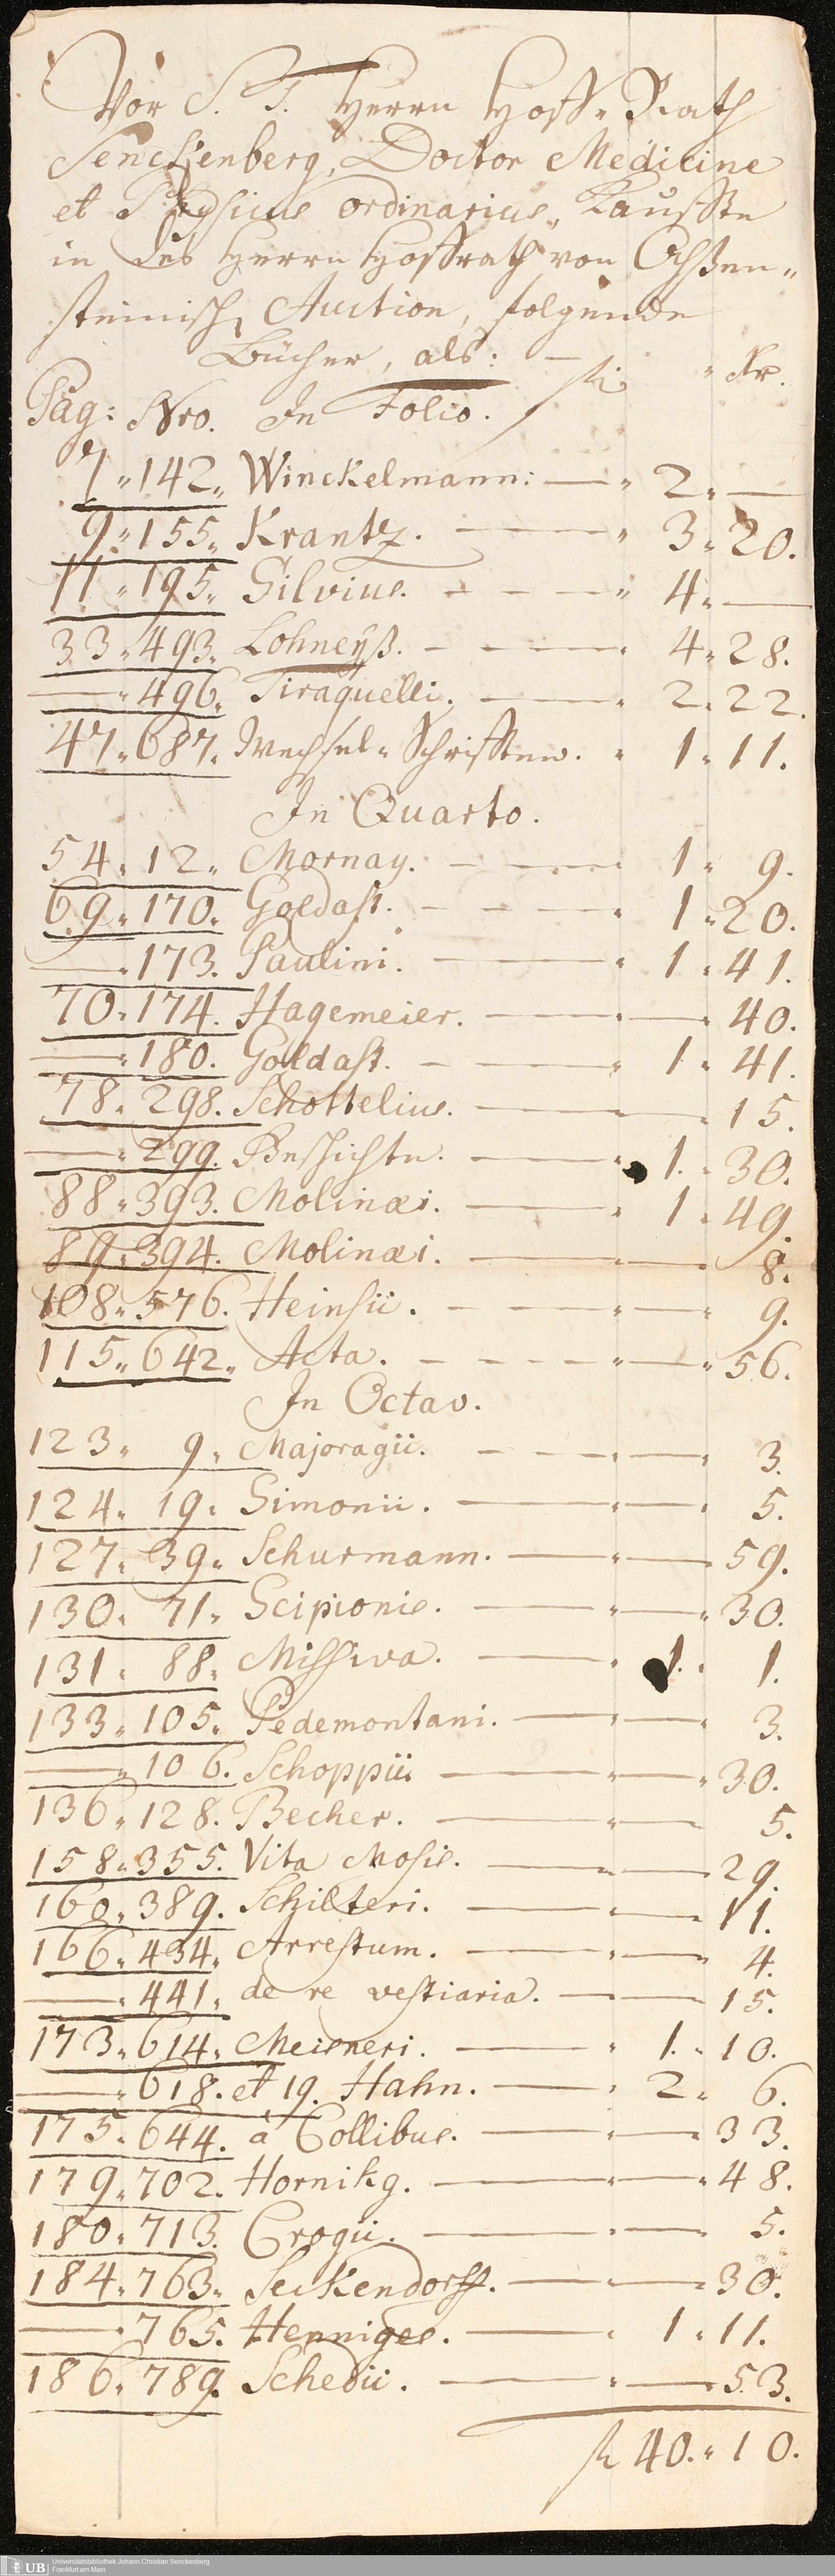 Vor S. T. Herrn Hoff-Rath
Senckenberg, Doctor Medicine
et Physicus ordinarius, Kauffte
in des Herrn Hoffrath von Ochßen-
steinisch, Auction, folgende
Bücher, als: — fl. " Kr.
Pag: Nro. In Folio.
7 " 142 " Winckelmann: — " 2 " —
9 " 155 " Krantz. — " 3 " 20.
11 " 195 " Silvius. — " 4 " —
33 " 493. Lohneyß. — " 4 " 28.
— " 496. Tiraquelli. — " 2 " 22.
47 " 687. Wechsel-Schrifften. " 1 " 11.
In Quarto.
54 " 12 " Mornay. — " 1 " 9.
69 " 170 " Goldast. — " 1 " 20.
— " 173. Paulini. — " 1 " 41.
70 " 174. Hagemeier. — " — " 40.
— " 180. Goldast. — " 1 " 41.
78 " 298. Schottelius. — " — 15.
— " 299. Geschichte. — " 1. " 30.
88 " 393. Molinæi. — " 1 " 49.
89 " 394. Molinæi. — " — " 8.
108 " 576. Heinsii. — " — " 9.
115 " 642 " Acta. — " — " 56.
In Octav.
123 " 9 " Majoragii. — " — " 3.
124 " 19 " Simonii. — " — " 5.
127 " 39 " Schurmann. — " — 59.
130 " 71 " Scipionis. — " — " 30.
131 " 88 " Missiva. — " 1. " 1.
133 " 105 " Pedemontani. — " — " 3.
— " 106. Schoppii. — " — " 30.
136 " 128. Becher. — " — 5.
158 " 355. Vita Mosis. — " — 29.
160 " 389. Schilteri. — " — 11.
166 " 434 " Arrestum. — " — " 4.
— " 441 " de re vestiaria. — " — 15.
173 " 614 " Meisneri. — " 1. " 10.
— " 618. et 19. Hahn. — " 2 " 6.
175 " 644. à Collibus. — " — " 33.
179 " 702. Hornikg. — " — " 48.
180 " 713. Crogii. — " — " 5.
184 " 763 " Seckendorff. — " — 30.
— " 765. Henniges. — " 1 " 11.
186 " 789. Schedii. — " — 53.
fl 40. " 10.
UB Universitätsbibliothek Johann Christian Senckenberg
Frankfurt am Main